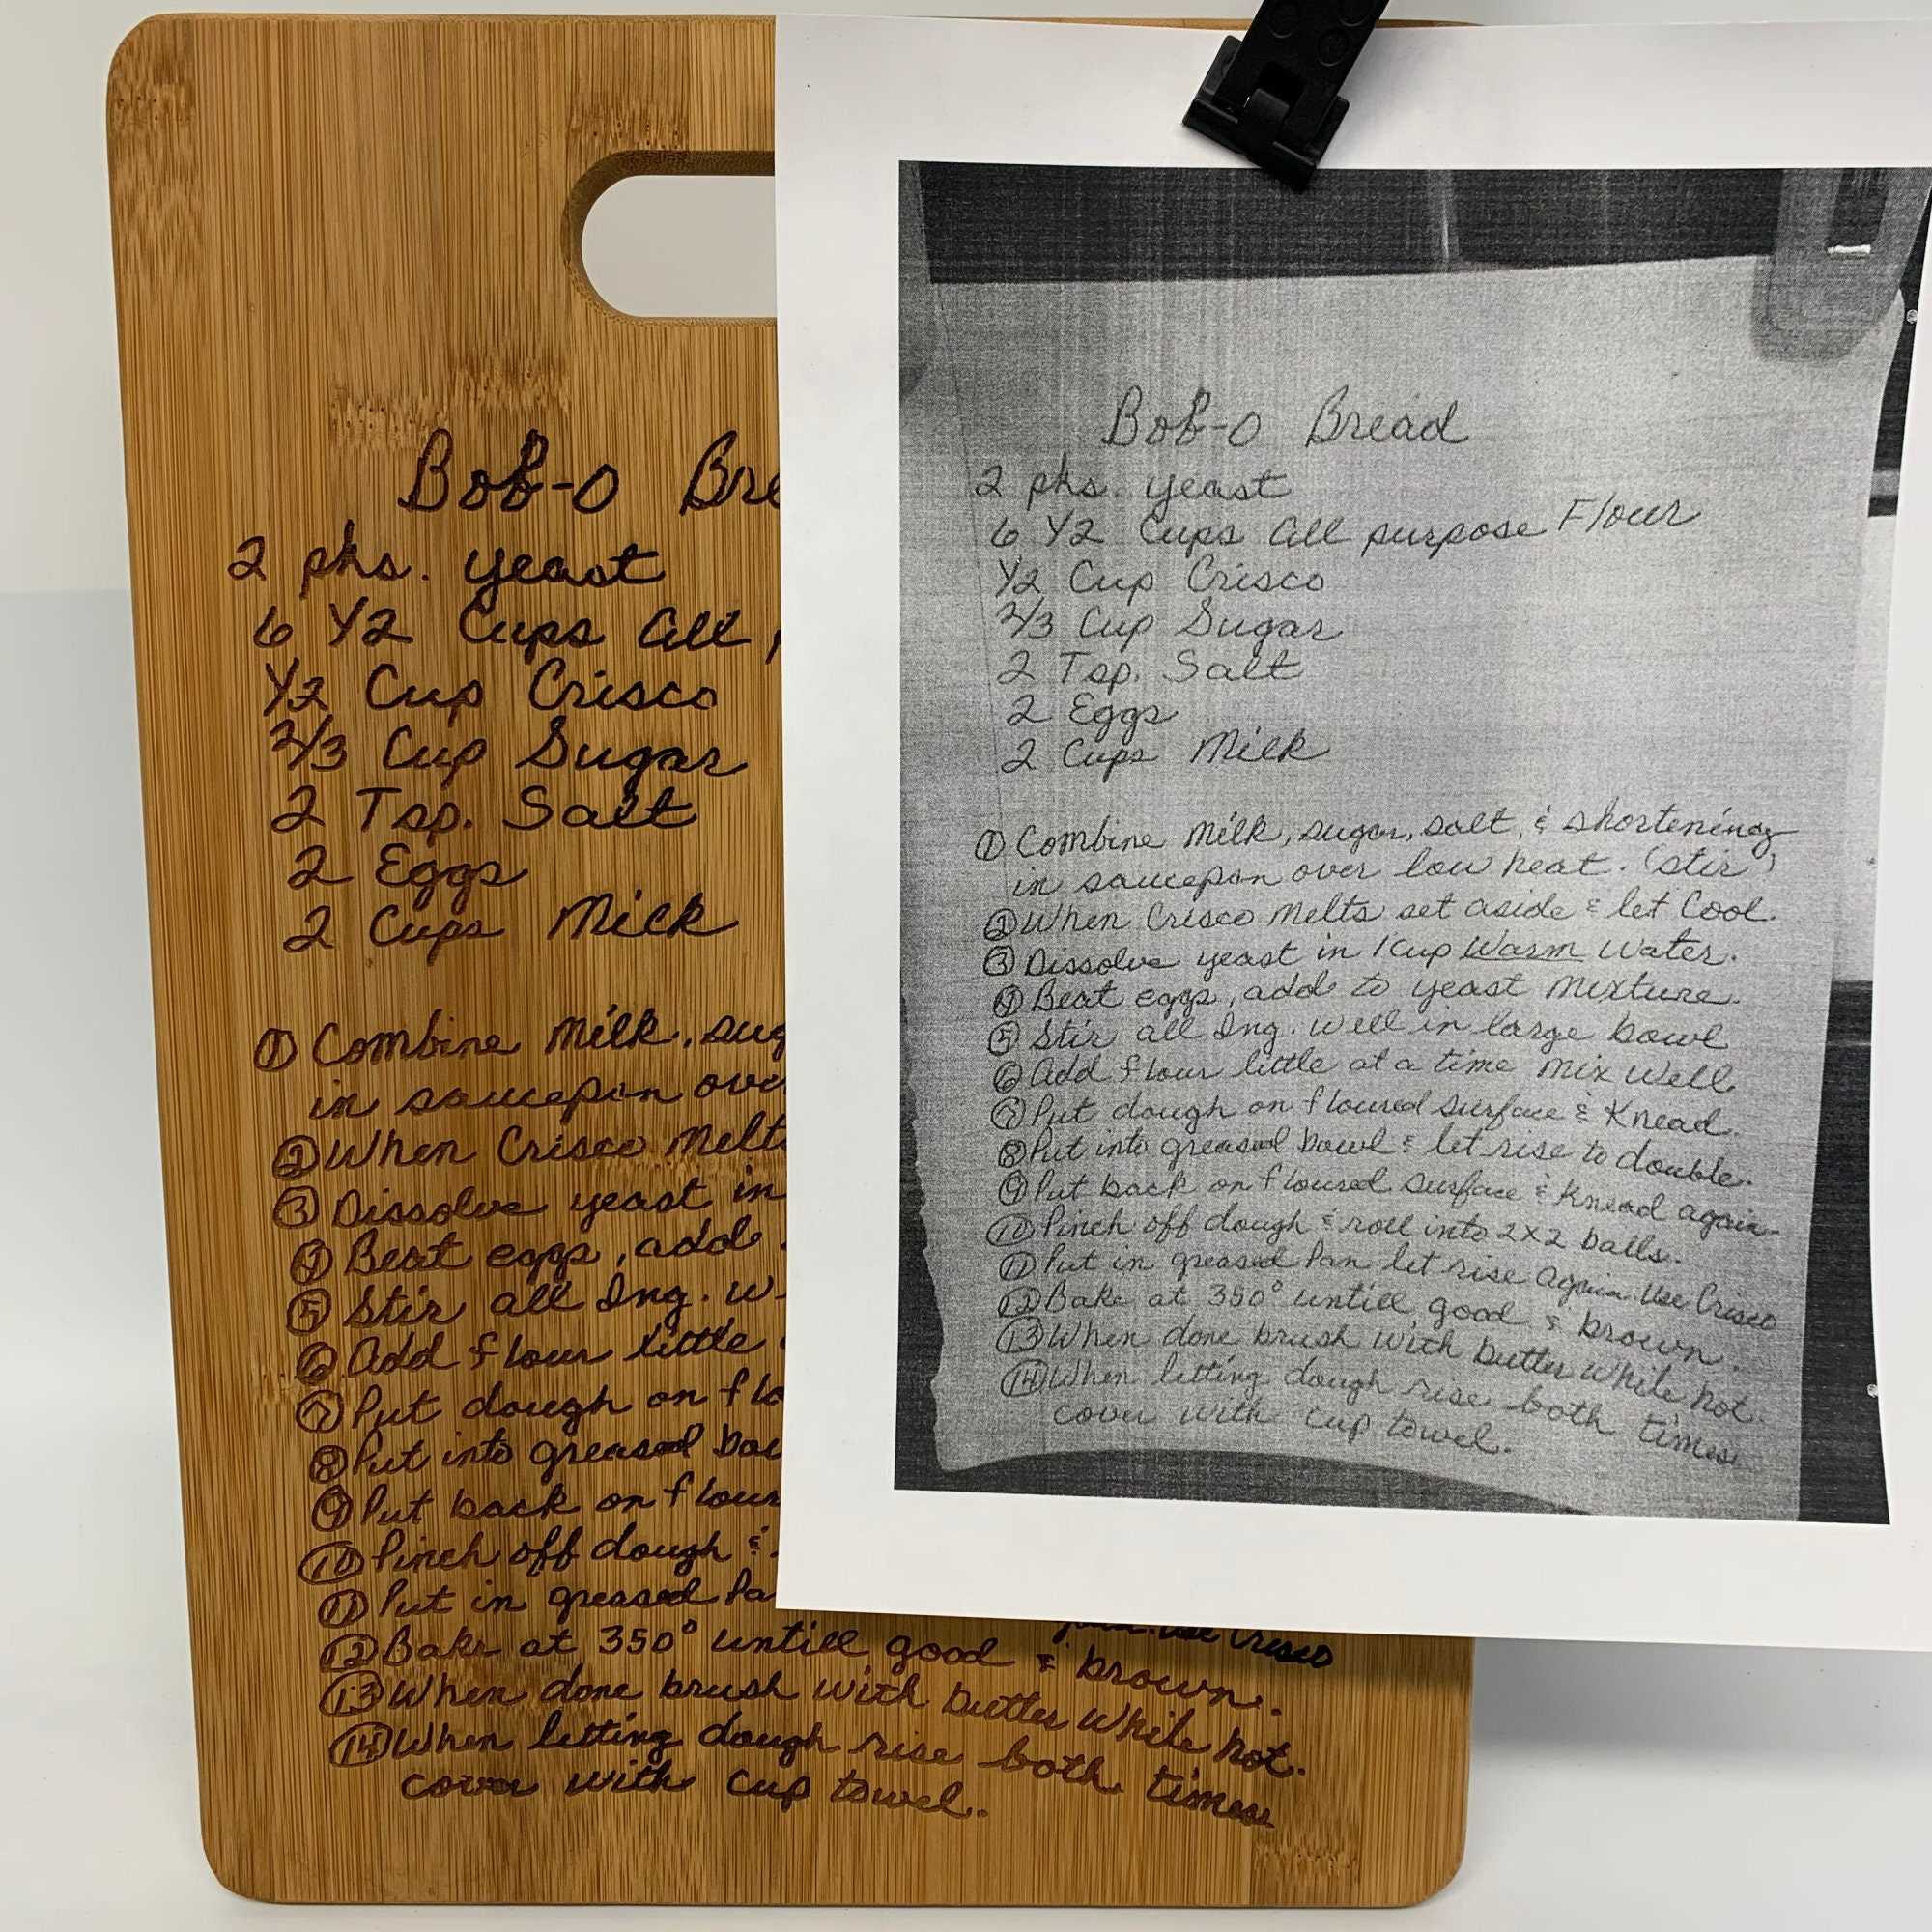 Bob-o Bre
2 pks. yeast
6 1/2 Cups all
1/2 Cup Crisco
2/3 Cup Sugar
2 Tsp. Salt
2 Eggs
2 Cups Milk
① Combine Milk, sug
in saucepan ove
② When Crisco Melts
③ Dissolve yeast in
④ Beat eggs, add
⑤ Stir all Ing. w
⑥ add flour little
⑦ Put dough on flo
⑧ Put into greased bow
⑨ Put back on flour
⑩ Pinch off dough &
⑪ Put in greased Pa
Use Crisco
⑫ Bake at 350° untill good & brown.
⑬ When done brush with butter while hot.
⑭ When letting dough rise both times
cover with cup towel.
Bob-o Bread
2 pks. yeast
6 1/2 Cups all purpose Flour
1/2 Cup Crisco
2/3 Cup Sugar
2 Tsp. Salt
2 Eggs
2 Cups Milk
① Combine Milk, sugar, salt, & shortening
in saucepan over low heat. (stir)
② When Crisco Melts set aside & let Cool.
③ Dissolve yeast in 1 Cup Warm Water.
④ Beat eggs, add to yeast Mixture.
⑤ Stir all Ing. well in large bowl
⑥ add flour little at a time Mix Well
⑦ Put dough on floured surface & Knead.
⑧ Put into greased bowl & let rise to double.
⑨ Put back on floured surface & Knead again.
⑩ Pinch off dough & roll into 2x2 balls.
⑪ Put in greased Pan let rise again. Use Crisco
⑫ Bake at 350° untill good & brown.
⑬ When done brush with butter while hot.
⑭ When letting dough rise both times
cover with cup towel.